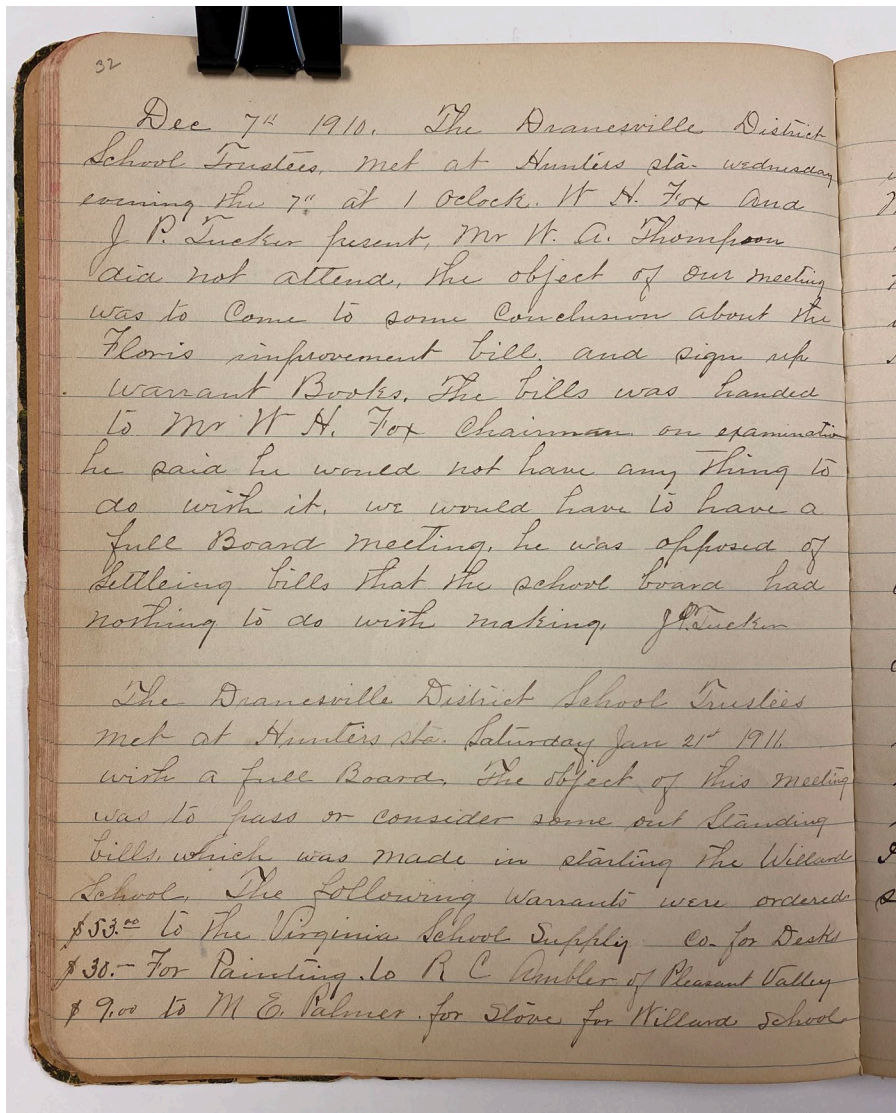 32
Dec 7th 1910. The Dranesville District
School Trustees, met at Hunters sta- wednesday
evening the 7" at 1 Oclock. W H. Fox And
J P. Tucker present, Mr W. A. Thompson
did not attend, the object of our meeting
was to Come to some Conclusion about the
Floris improvement bill. and sign up
warrant Books. The bills was handed
to Mr W H. Fox Chairman on examination
he said he would not have any thing to
do with it. we would have to have a
full Board meeting. he was opposed of
Settleing bills that the school board had
nothing to do with making. J.P. Tucker
The Dranesville District School Trustees
met at Hunters sta. Saturday Jan 21st 1911.
with a full Board. The object of this meeting
was to pass or consider some out Standing
bills. which was made in starting the Willard
School. The following warrants were ordered
$53.00 to the Virginia School Supply co- for Desks
$30.- For Painting to R C Ambler of Pleasant Valley
$9.00 to M E. Palmer. for Stove for Willard School